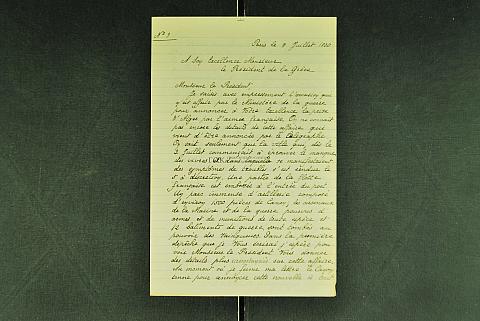 No 9
Paris le 9 Juillet 1830
A Son Excellence Monsieur
le Président de la Grèce
Monsieur le President
Je saisis avec empressement l'occasion que
m'est offerte par le Ministère de la guerre
pour annoncer à Votre Excellence la prise
d'Alger par l'armée française. On ne connait
pas encore les details de cette affaire qui
vient d'être annoncée par le télégraphe
On sait seulement que la ville qui dès le
2 Juillet commençait à éprouver le manque
des vivres et dans laquelle se manifestaient
des symptômes de troubles s'est rendue le
5 à discretion. Une partie de la flotte
française est embossée à l'entrée du port.
Un parc immense d'artillerie composé
d'environ 1500 pièces de Canon, les arsenaux
de la Marine et de la guerre pourvus d'
armes et de munitions de toute espèce et
12 batiments de guerre, sont tombés au
pouvoir des vainqueurs. Dans la première
depêche que je Vous adresserai j'espère pou-
voir Monsieur le Président Vous donner
des détails plus sur cette affaire.
Au moment où je ferme ma lettre le Canon
tonne pour annoncer cette nouvelle à tout